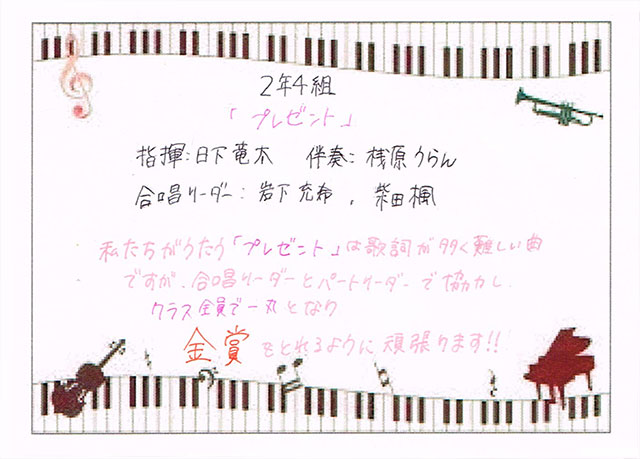 2年4組
「プレゼント」
指揮:日下竜太 伴奏:桟原うらん
合唱リーダー:岩下充希,柴田楓
私たちがうたう「プレゼント」は歌詞が多く難しい曲
ですが、合唱リーダーとパートリーダーで協力し、
クラス全員で一丸となり
金賞をとれるように頑張ります!!